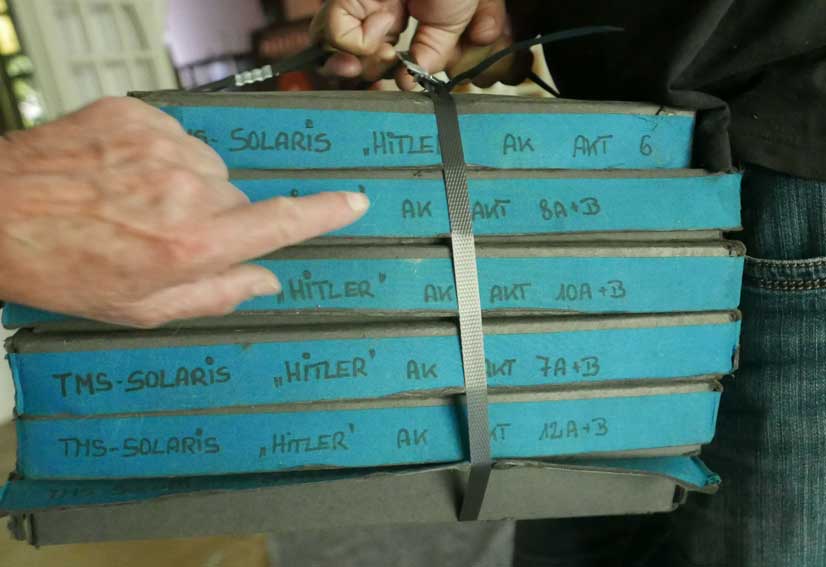 SOLARiS „HiTLE AK AKT 6
AK AKT 8A+B
„HiTLER" AK AKT 10A+B
TMS-SOLARiS „HiTLER" AK KT 7A+B
TMS-SOLARiS „HiTLER" AK KT 12A+B
TMS